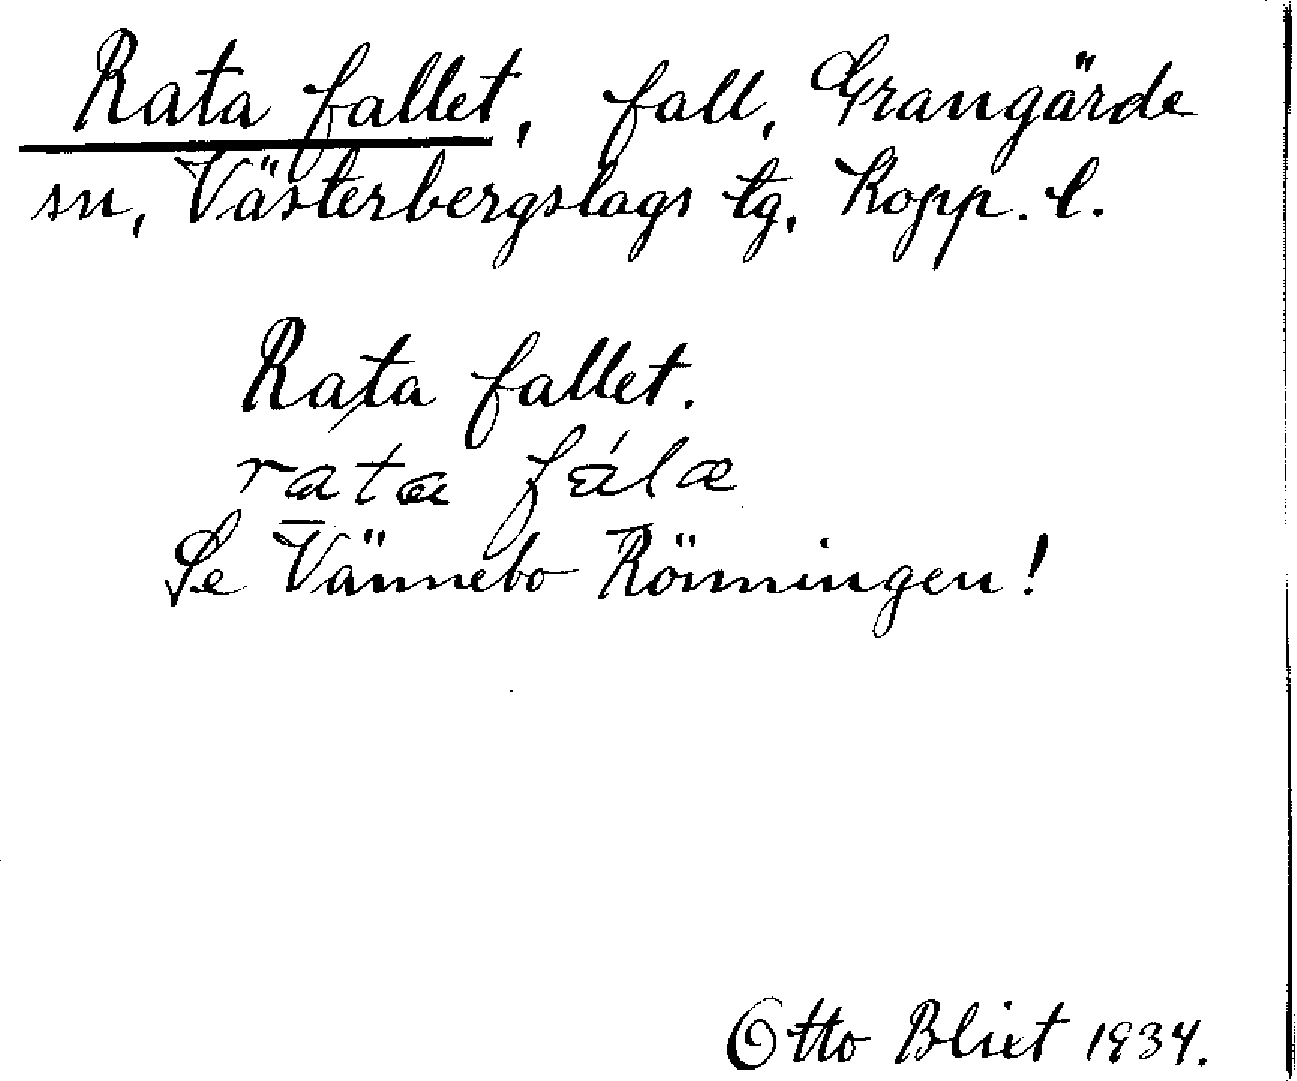 Rata fallet, fall, Grangärde
sn, Västerbergslags tg, Kopp. l.
Rata fallet.
rata fála
Se Vännebo Rönningen!
Otto Blixt 1934.